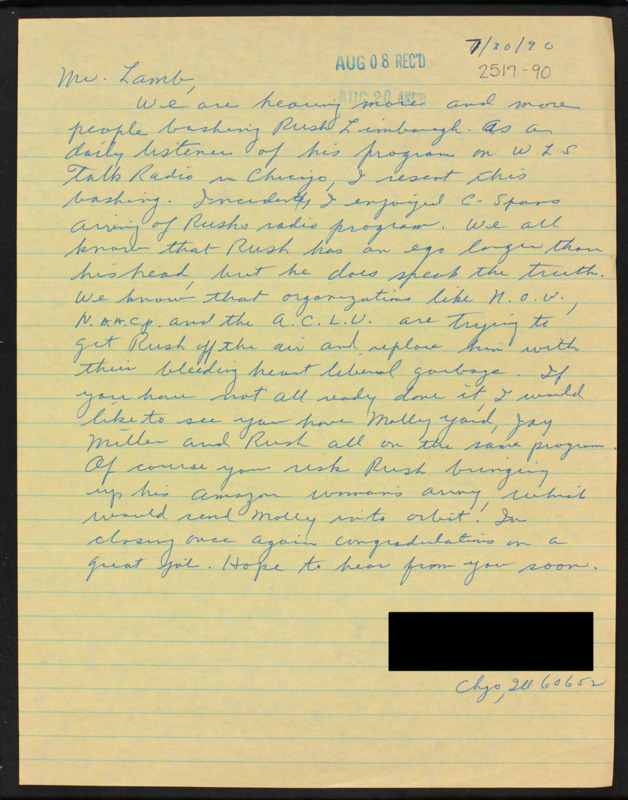 7/30/90
AUG 08 REC'D
2517-90
AUG 20 ANS'D
Mr. Lamb,
We are hearing more and more
people bashing Rush Limbaugh. As a
daily listener of his program on WLS
Talk Radio in Chicago, I resent this
bashing. Incidently, I enjoyed C-Spans
airing of Rushs radio program. We all
know that Rush has an ego larger than
his head, but he does speak the truth.
We know that organizations like N.O.W.,
N.A.A.C.P. and the A.C.L.U. are trying to
get Rush off the air and replace him with
their bleeding heart liberal garbage. If
you have not all ready done it, I would
like to see you have Molley Yard, Jay
Miller and Rush all on the same program.
Of course you risk Rush bringing
up his amazon womans army, which
would send Molly into orbit. In
closing once again congradulations on a
great job. Hope to hear from you soon.
Chgo, Ill 60652